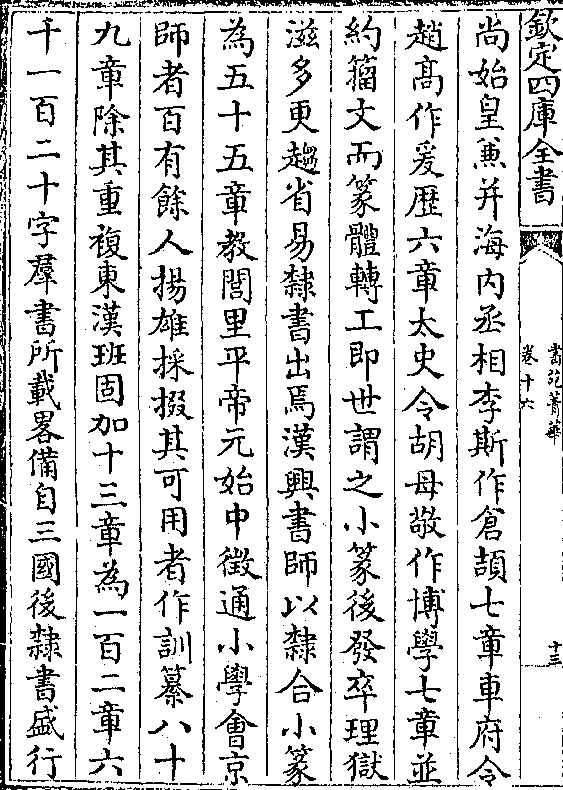 欽定四庫全書
書苑菁華
卷十六
十三
尚始皇兼并海內丞相李斯作倉頡七章車府令
趙髙作爰歴六章太史令胡母敬作博學七章並
約籀文而篆體轉工即世謂之小篆後發卒理獄
滋多更趨省易隸書出焉漢興書師以隸合小篆
為五十五章教閭里平帝元始中徵通小學會京
師者百有餘人揚雄採掇其可用者作訓纂八十
九章除其重複東漢班固加十三章為一百二章六
千一百二十字羣書所載畧備自三國後隸書盛行